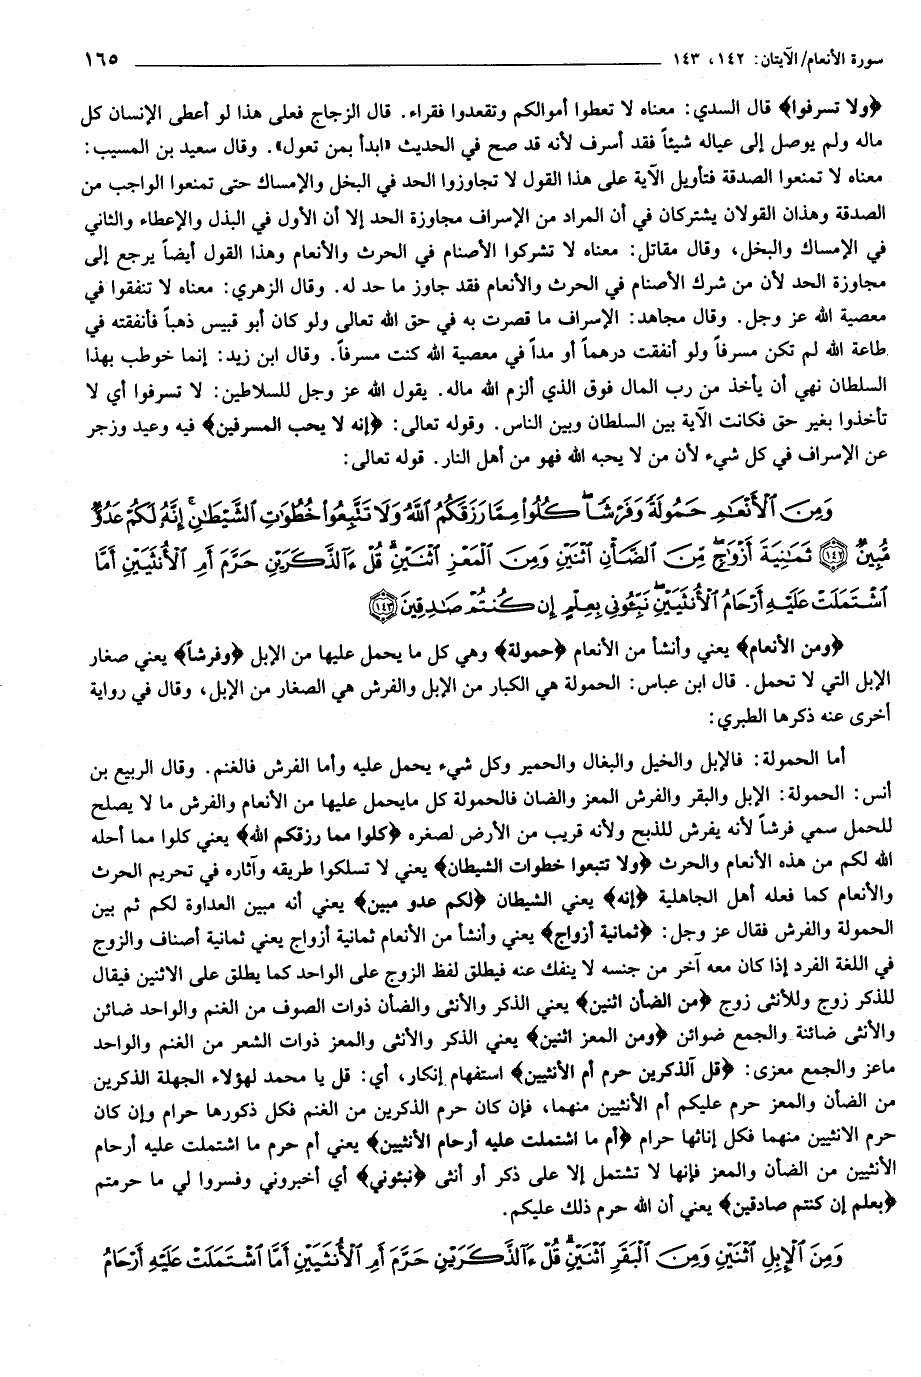 سورة الأنعام/ الآيتان: ١٤٢، ١٤٣ ١٦٥
﴿ولا تسرفوا﴾ قال السدي: معناه لا تعطوا أموالكم وتقعدوا فقراء. قال الزجاج فعلى هذا لو أعطى الإنسان كل
ماله ولم يوصل إلى عياله شيئاً فقد أسرف لأنه قد صح في الحديث «ابدأ بمن تعول». وقال سعيد بن المسيب:
معناه لا تمنعوا الصدقة فتأويل الآية على هذا القول لا تجاوزوا الحد في البخل والإمساك حتى تمنعوا الواجب من
الصدقة وهذان القولان يشتركان في أن المراد من الإسراف مجاوزة الحد إلا أن الأول في البذل والإعطاء والثاني
في الإمساك والبخل، وقال مقاتل: معناه لا تشركوا الأصنام في الحرث والأنعام وهذا القول أيضاً يرجع إلى
مجاوزة الحد لأن من شرك الأصنام في الحرث والأنعام فقد جاوز ما حد له. وقال الزهري: معناه لا تنفقوا في
معصية الله عز وجل. وقال مجاهد: الإسراف ما قصرت به في حق الله تعالى ولو كان أبو قبيس ذهباً فأنفقته في
طاعة الله لم تكن مسرفاً ولو أنفقت درهماً أو مداً في معصية الله كنت مسرفاً. وقال ابن زيد: إنما خوطب بهذا
السلطان نهي أن يأخذ من رب المال فوق الذي ألزم الله ماله. يقول الله عز وجل للسلاطين: لا تسرفوا أي لا
تأخذوا بغير حق فكانت الآية بين السلطان وبين الناس. وقوله تعالى: ﴿إنه لا يحب المسرفين﴾ فيه وعيد وزجر
عن الإسراف في كل شيء لأن من لا يحبه الله فهو من أهل النار. قوله تعالى:
وَمِنَ ٱلْأَنْعَٰمِ حَمُولَةً وَفَرْشًا ۚ كُلُوا۟ مِمَّا رَزَقَكُمُ ٱللَّهُ وَلَا تَتَّبِعُوا۟ خُطُوَٰتِ ٱلشَّيْطَٰنِ ۚ إِنَّهُۥ لَكُمْ عَدُوٌّ
مُّبِينٌ ﴿١٤٢﴾ ثَمَٰنِيَةَ أَزْوَٰجٍ ۖ مِّنَ ٱلضَّأْنِ ٱثْنَيْنِ وَمِنَ ٱلْمَعْزِ ٱثْنَيْنِ ۗ قُلْ ءَآلذَّكَرَيْنِ حَرَّمَ أَمِ ٱلْأُنثَيَيْنِ أَمَّا
ٱشْتَمَلَتْ عَلَيْهِ أَرْحَامُ ٱلْأُنثَيَيْنِ ۖ نَبِّـُٔونِى بِعِلْمٍ إِن كُنتُمْ صَٰدِقِينَ ﴿١٤٣﴾
﴿ومن الأنعام﴾ يعني وأنشأ من الأنعام ﴿حمولة﴾ وهي كل ما يحمل عليها من الإبل ﴿وفرشاً﴾ يعني صغار
الإبل التي لا تحمل. قال ابن عباس: الحمولة هي الكبار من الإبل والفرش هي الصغار من الإبل، وقال في رواية
أخرى عنه ذكرها الطبري:
أما الحمولة: فالإبل والخيل والبغال والحمير وكل شيء يحمل عليه وأما الفرش فالغنم. وقال الربيع بن
أنس: الحمولة: الإبل والبقر والفرش المعز والضان فالحمولة كل مايحمل عليها من الأنعام والفرش ما لا يصلح
للحمل سمي فرشاً لأنه يفرش للذبح ولأنه قريب من الأرض لصغره ﴿كلوا مما رزقكم الله﴾ يعني كلوا مما أحله
الله لكم من هذه الأنعام والحرث ﴿ولا تتبعوا خطوات الشيطان﴾ يعني لا تسلكوا طريقه وآثاره في تحريم الحرث
والأنعام كما فعله أهل الجاهلية ﴿إنه﴾ يعني الشيطان ﴿لكم عدو مبين﴾ يعني أنه مبين العداوة لكم ثم بين
الحمولة والفرش فقال عز وجل: ﴿ثمانية أزواج﴾ يعني وأنشأ من الأنعام ثمانية أزواج يعني ثمانية أصناف والزوج
في اللغة الفرد إذا كان معه آخر من جنسه لا ينفك عنه فيطلق لفظ الزوج على الواحد كما يطلق على الاثنين فيقال
للذكر زوج وللأنثى زوج ﴿من الضأن اثنين﴾ يعني الذكر والأنثى والضأن ذوات الصوف من الغنم والواحد ضائن
والأنثى ضائنة والجمع ضوائن ﴿ومن المعز اثنين﴾ يعني الذكر والأنثى والمعز ذوات الشعر من الغنم والواحد
ماعز والجمع معزى: ﴿قل آلذكرين حرم أم الأنثيين﴾ استفهام إنكار، أي: قل يا محمد لهؤلاء الجهلة الذكرين
من الضأن والمعز حرم عليكم أم الأنثيين منهما، فإن كان حرم الذكرين من الغنم فكل ذكورها حرام وإن كان
حرم الانثيين منهما فكل إناثها حرام ﴿أم ما اشتملت عليه أرحام الأنثيين﴾ يعني أم حرم ما اشتملت عليه أرحام
الأنثيين من الضأن والمعز فإنها لا تشتمل إلا على ذكر أو أنثى ﴿نبئوني﴾ أي أخبروني وفسروا لي ما حرمتم
﴿بعلم إن كنتم صادقين﴾ يعني أن الله حرم ذلك عليكم.
وَمِنَ ٱلْإِبِلِ ٱثْنَيْنِ وَمِنَ ٱلْبَقَرِ ٱثْنَيْنِ ۗ قُلْ ءَآلذَّكَرَيْنِ حَرَّمَ أَمِ ٱلْأُنثَيَيْنِ أَمَّا ٱشْتَمَلَتْ عَلَيْهِ أَرْحَامُ